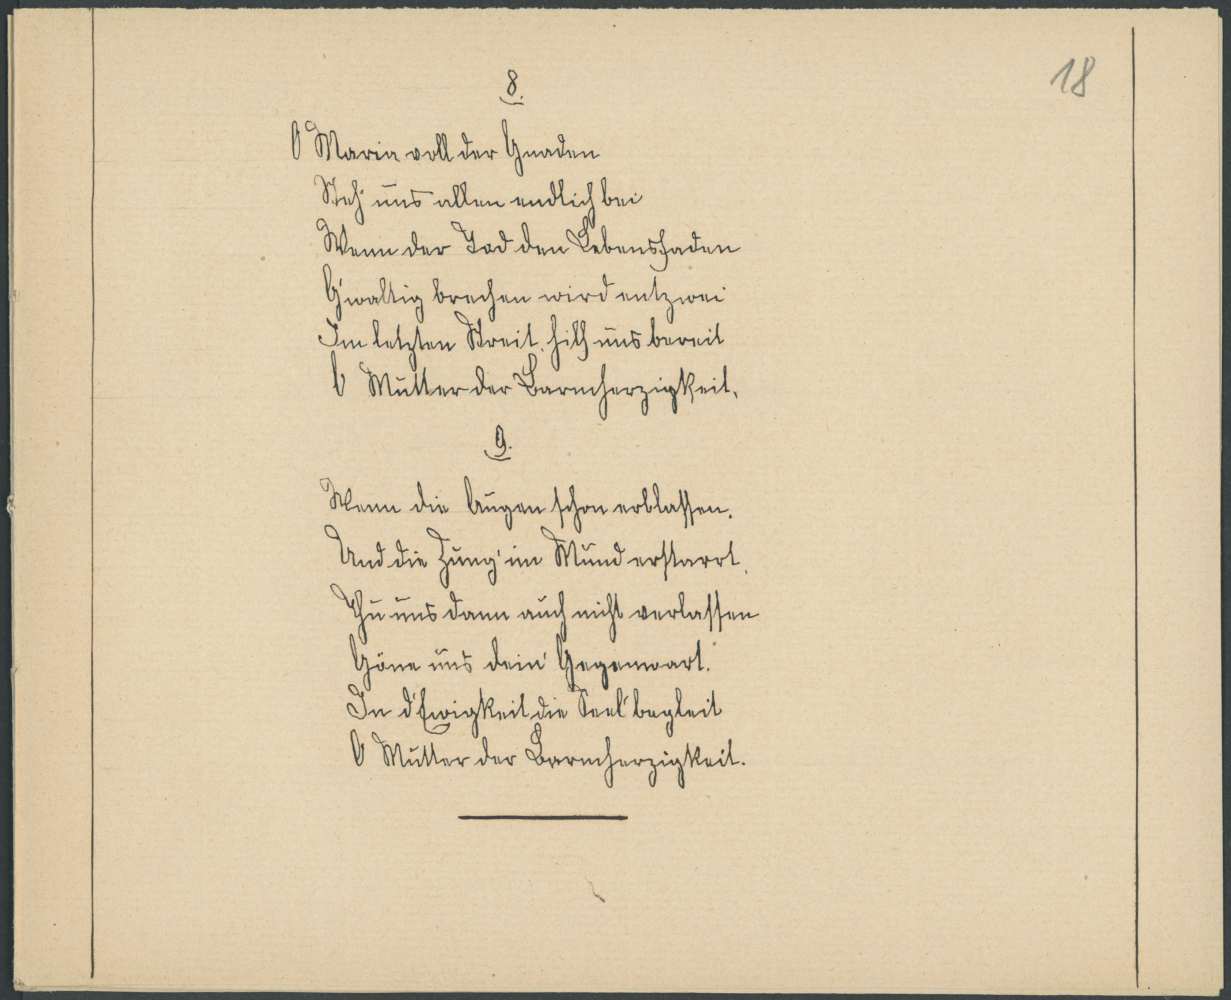 18
8.
O Maria voll der Gnaden
Steh' uns allen endlich bei
Wenn der Tod den Lebensfaden
G'waltig brechen wird entzwei
Im letzten Streit, hilf uns bereit
O Mutter der Barmherzigkeit.
9.
Wenn die Augen schon erblassen.
Und die Zung' im Mund erstarrt.
Thu uns dann auch nicht verlassen
Göne uns dein' Gegenwart.
In d'Ewigkeit die Seel' begleit
O Mutter der Barmherzigkeit.